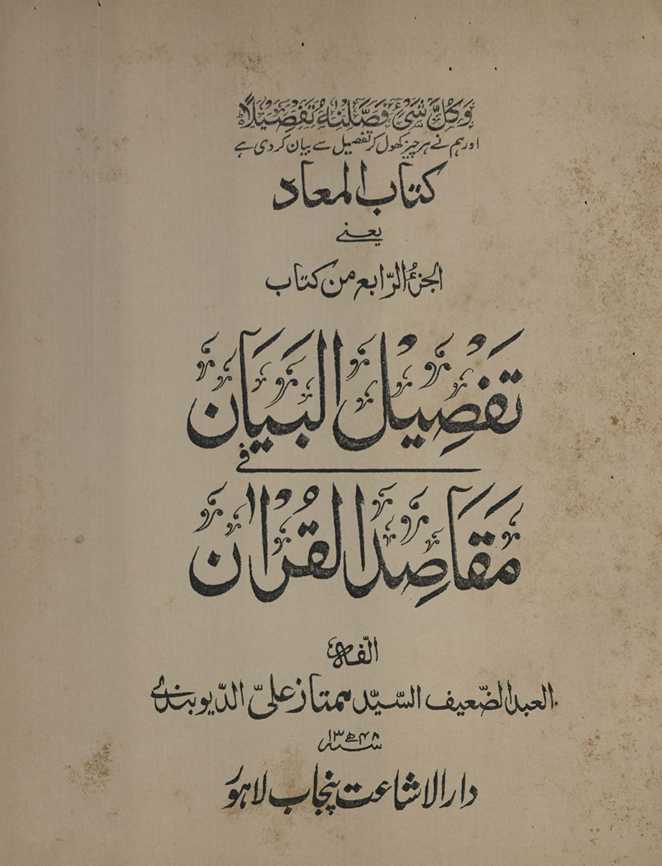 وَكُلَّ شَیْءٍ فَصَّلْنٰهُ تَفْصِیْلًا
اور ہم نے ہر چیز کھول کر تفصیل سے بیان کر دی ہے
کتاب المعاد
یعنی
الجزء الرّابع من کتاب
تَفْصِیْل البَیَان
فی
مَقَاصِد القُرآن
الّفہ
العبد الضّعیف السیّد ممتاز علیّ الدّیوبندی
سنہ ۱۳۴۸ھ
دار الاشاعت پنجاب لاہور